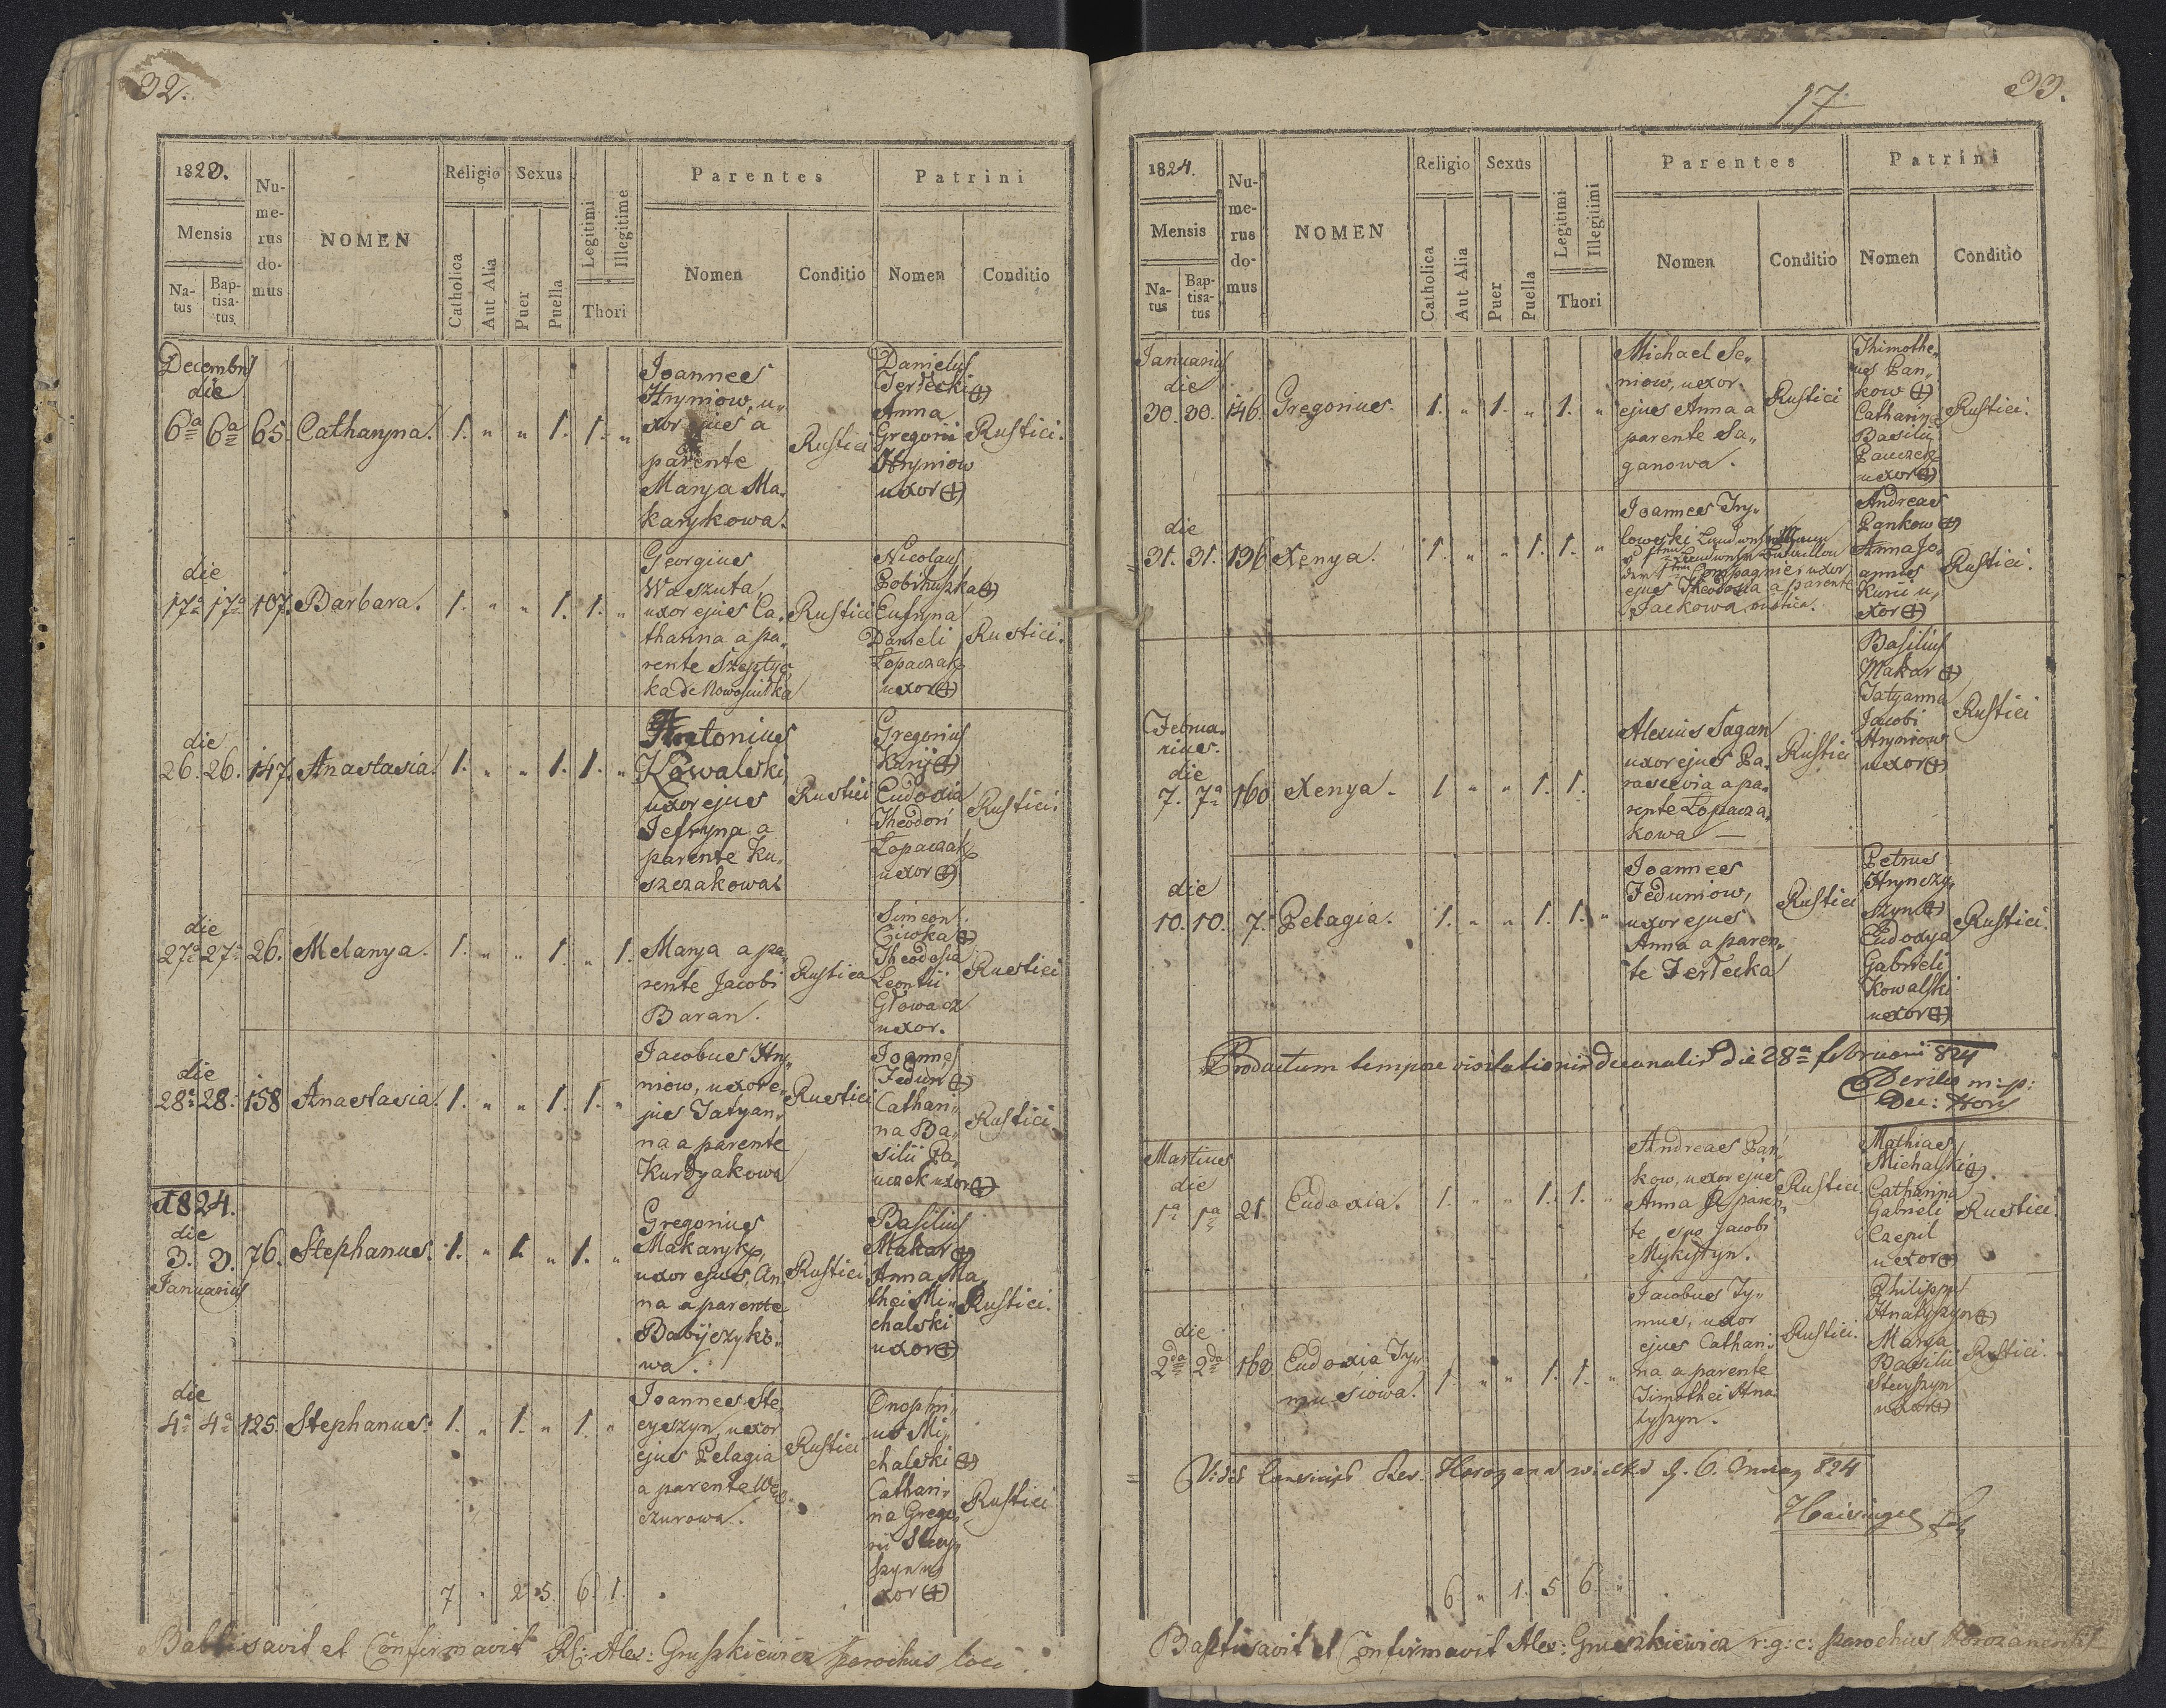 32.
1823.
Mensis
Na-
tus
Bap-
tisa-
tus
Nu-
me-
rus
do-
mus
NOMEN
Religio
Catholica
Aut Alia
Sexus
Puer
Puella
Legitimi
Illegitime
Thori
Parentes
Nomen
Conditio
Patrini
Nomen
Conditio
Decembris
die
6a 6a 65. Catharyna. 1. „ „ 1. 1. „
Joannes
Hryniow, u„
xor ejus a
parente
Marya Ma„
karykowa.
Rustici
Danielus
Jerłecki (+)
Anna
Gregorii
Hryniow
uxor (+)
Rustici.
die
17a 17a 107. Barbara. 1. „ „ 1. 1. „
Georgius
Waszuta,
uxor ejus Ca„
tharina a pa„
rente Szeptyc
ka de Nowosiułka
Rustici
Nicolaus
Pobihuszka (+)
Eufryna
Danieli
Łopaczak
uxor (+)
Rustici.
die
26. 26. 147. Anastasia. 1. „ „ 1. 1. „
Antonius
Kowalski,
uxor ejus
Jefryna a
parente Ku„
szczakowa
Rustici
Gregorius
Kurij (+)
Eudoxia
Theodori
Łopaczak
uxor (+)
Rustici.
die
27a 27a 26. Melanya. 1. „ „ 1. „ 1.
Marya a pa„
rente Jacobi
Baran.
Rustica
Simeon
Ciośka (+)
Theodosia
Leontii
Głowacz
uxor.
Rustici
die
28a 28. 158 Anastasia. 1. „ „ 1. 1. „
Jacobus Hry„
niow, uxor e„
jus Tatyan„
na a parente
Kurdyakowa
Rustici
Joannes
Fedun (+)
Cathari„
na Ba„
silii Pa„
uczek uxor (+)
Rustici.
1824.
die
3. 3. 76. Stephanus. 1. „ 1. „ 1. „
Januarius
Gregorius
Makaryk,
uxor ejus, An„
na a parente
Babijczyko„
wa.
Rustici
Basilius
Makar (+)
Anna Ma„
thei Mi„
chalski
uxor (+)
Rustici.
die
4a 4a 125. Stephanus. 1. „ 1. „ 1. „
Joannes Ste„
cyszyn, uxor
ejus Pelagia
a parente
czurowa.
Rustici
Onophri„
us Mi„
chalski (+)
Cathari„
na Grego„
rii Stecy„
szyn u„
xor (+)
Rustici
7 „ 2 5. 6. 1.
Babtisavit et Confirmavit Alex: Gruszkiewicz parochus loci.
33.
17
1824.
Mensis
Na-
tus
Bap-
tisa-
tus
Nu-
me-
rus
do-
mus
NOMEN
Religio
Catholica
Aut Alia
Sexus
Puer
Puella
Legitimi
Illegitimi
Thori
Parentes
Nomen
Conditio
Patrini
Nomen
Conditio
Januarius
die
30. 30. 146. Gregorius. 1. „ 1. „ 1. „
Michael Se„
niow, uxor
ejus Anna a
parente Sa„
ganowa.
Rustici
Thimothe„
us Pan„
kow (+)
Catharina
Basilii
Pauczek
uxor (+)
Rustici.
die
31. 31. 136 Xenya. 1. „ „ 1. 1. „
Joannes Try„
lowski
uxor
ejus Theodozia a parente
Jackowa rustica.
Andreas
Pankow (+)
Anna Jo„
annes
Kurii u„
xor (+)
Rustici.
Februa„
rius.
die
7. 7a 160 Xenya. 1 „ „ 1. 1.
Alexius Sagan
uxor ejus Pa„
rascevia a pa„
rente Łopacza„
kowa —
Rustici
Basilius
Makar (+)
Tatyanna
Jacobi
Hryniow
uxor (+)
Rustici
die
10. 10. 7. Pelagia. 1. „ „ 1. 1. „
Joannes
Feduniow,
uxor ejus
Anna a paren„
te Jerłecka
Rustici
Petrus
Hrynczy„
szyn (+)
Eudoxya
Gabrieli
Kowalski
uxor (+)
Rustici.
Productum tempore visitationis decanalis die 28a februarii 824
m: p:
Dec:
Martius
die
1a 1a 21. Eudoxia. 1. „ „ 1. 1. „
Andreas Pan„
kow, uxor ejus
Anna a paren„
te Jacobi
Mykityn.
Rustici.
Mathias
Michalski (+).
Catharina
Gabrieli
Capil
uxor (+)
Rustici.
die
2da 2da 163. Eudoxia Ty„
musiowa. 1. „ „ 1. 1. „
Jacobus Ty„
mus, uxor
ejus Cathari„
na a parente
Timothei Hna„
tyszyn.
Rustici.
Philippus
Hnatyszyn (+)
Marya
Basilii
Stecyszyn
uxor (+)
Rustici.
6 „ 1. 5 6. „
Baptisavit et Confirmavit Alex: Gruszkiewicz r: g: c: parochus Horozanensis